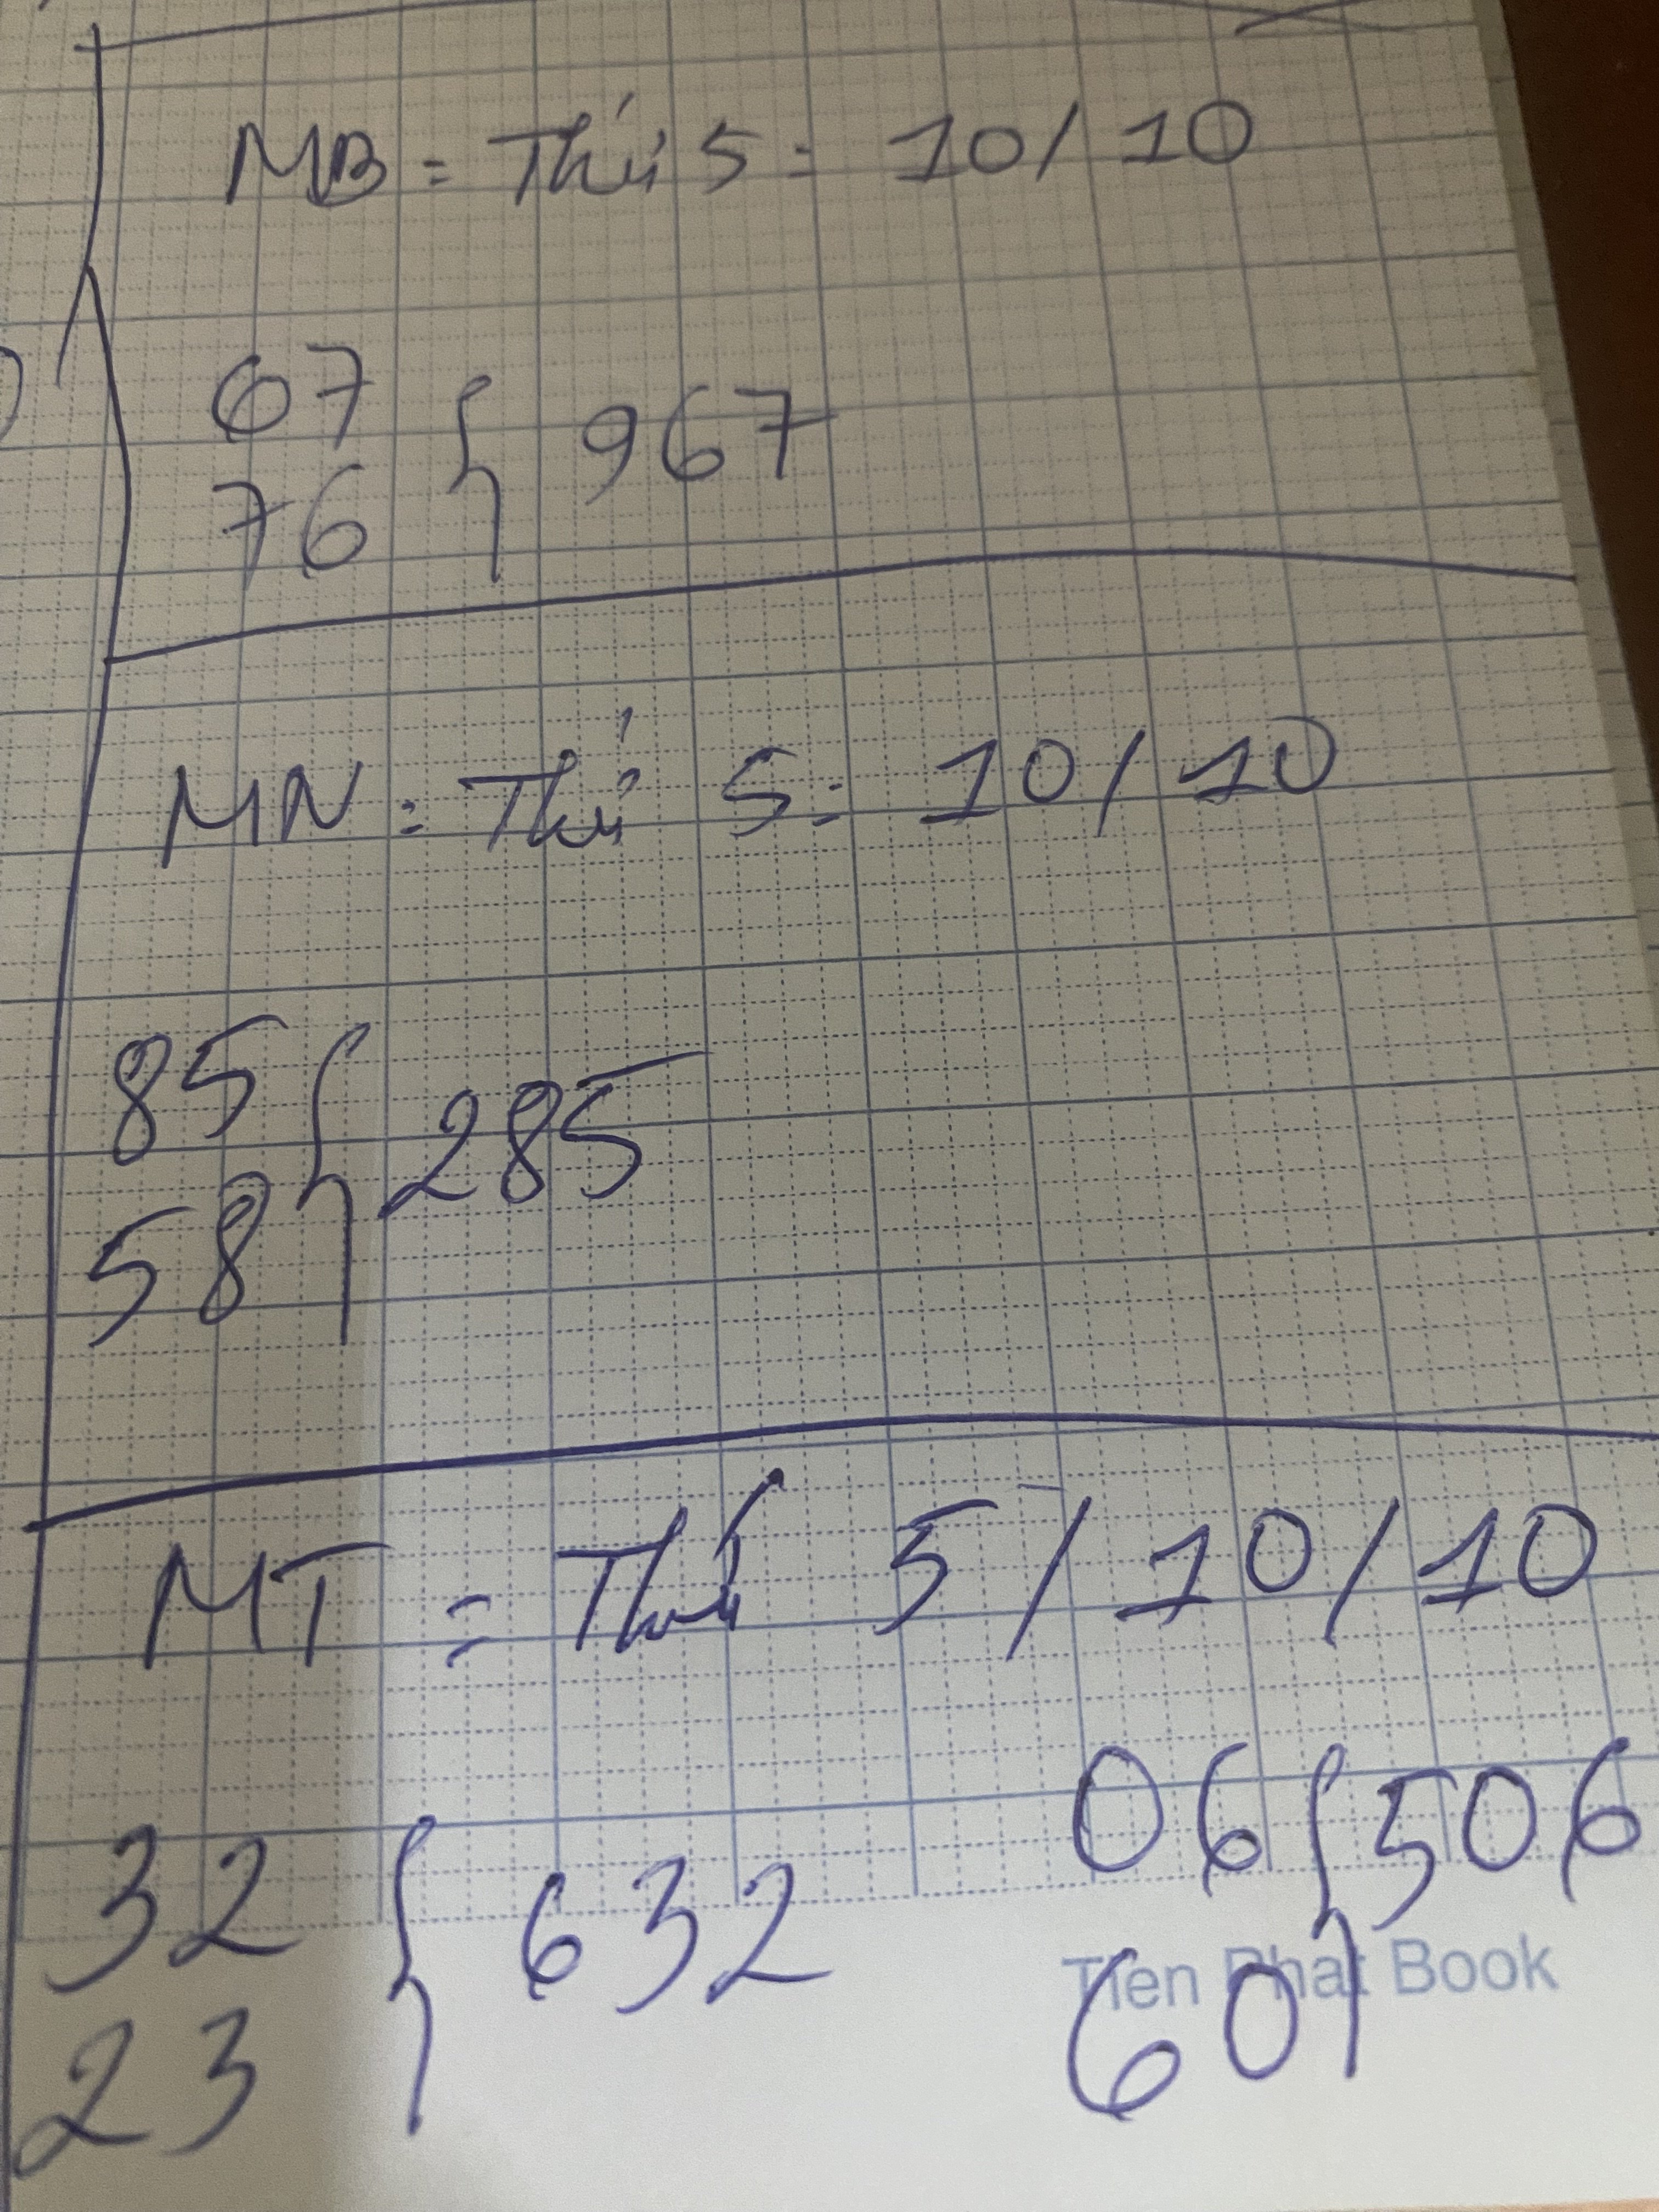 MB = Thứ 5 = 10/10
67
76 } 967
MN : Thứ 5 = 10/10
85
58 } 285
MT = Thứ 5/10/10
32
23 } 632
06
60 } 506
Tien Phat Book